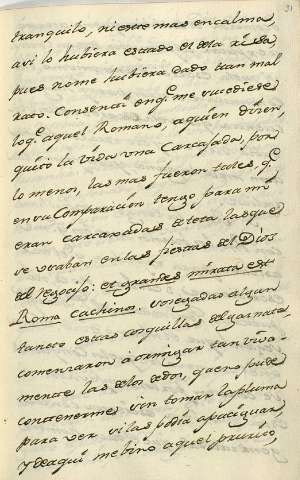 31
tranquilo, ni estre mas en calma,
avi lo hubiera estado el dela risa,
pues nome hubiera dado tan mal
rato. Consentí en q.e me sucediese
loq.e aquel Romano, aquien dizen,
quitó la vida una Carcajada, por
lo menos, las mas fueron tales, q.e
en su Comparacion tengo para mi
eran carcaxadas deteta las que
se usaban en las fiestas del Dios
del regocijo: et grandes mirata est
Roma cachinos. sosegadas algun
tanto estas cosquillas de garganta
comenzaron à ormigar tan viva-
mente las delos dedos, que no pude
contenerme sin tomar la pluma
para ver si las podia apaciguar,
y de aqui me bino aquel prurito,